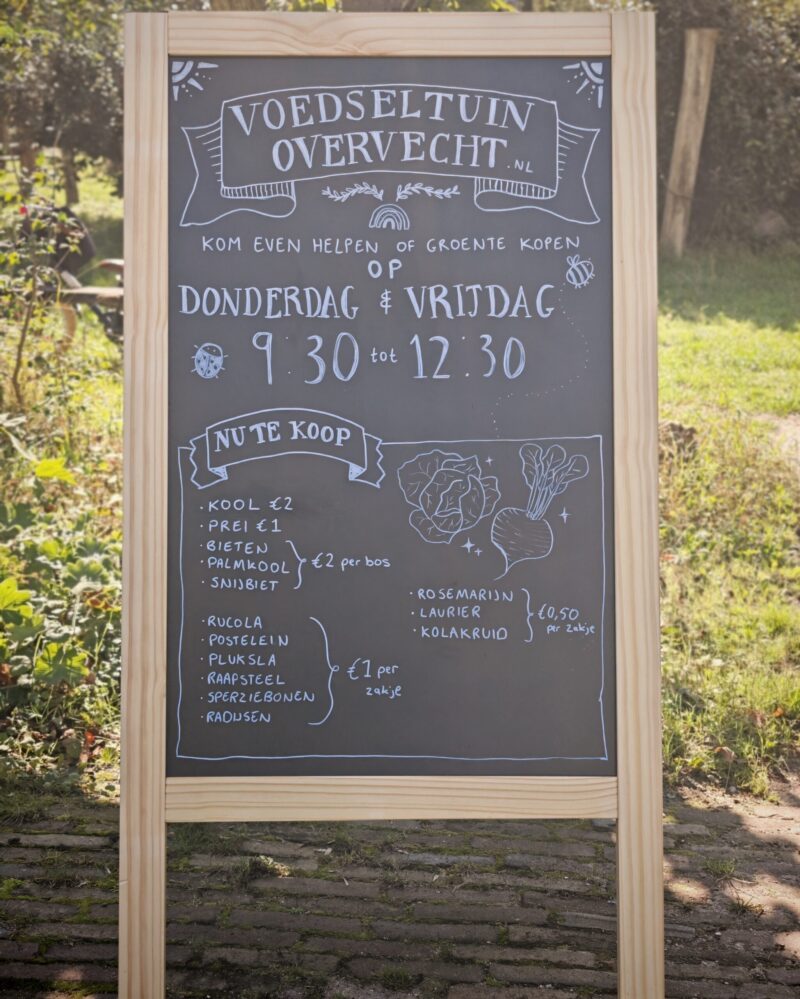 VOEDSELTUIN
OVERVECHT.NL
KOM EVEN HELPEN OF GROENTE KOPEN
OP
DONDERDAG & VRIJDAG
9:30 tot 12:30
NU TE KOOP
· KOOL €2
· PREI €1
· BIETEN
· PALMKOOL
· SNIJBIET
€2 per bos
· RUCOLA
· POSTELEIN
· PLUKSLA
· RAAPSTEEL
· SPERZIEBONEN
· RADIJSEN
€1 per
zakje
· ROSEMARIJN
· LAURIER
· KOLAKRUID
€0,50
per zakje